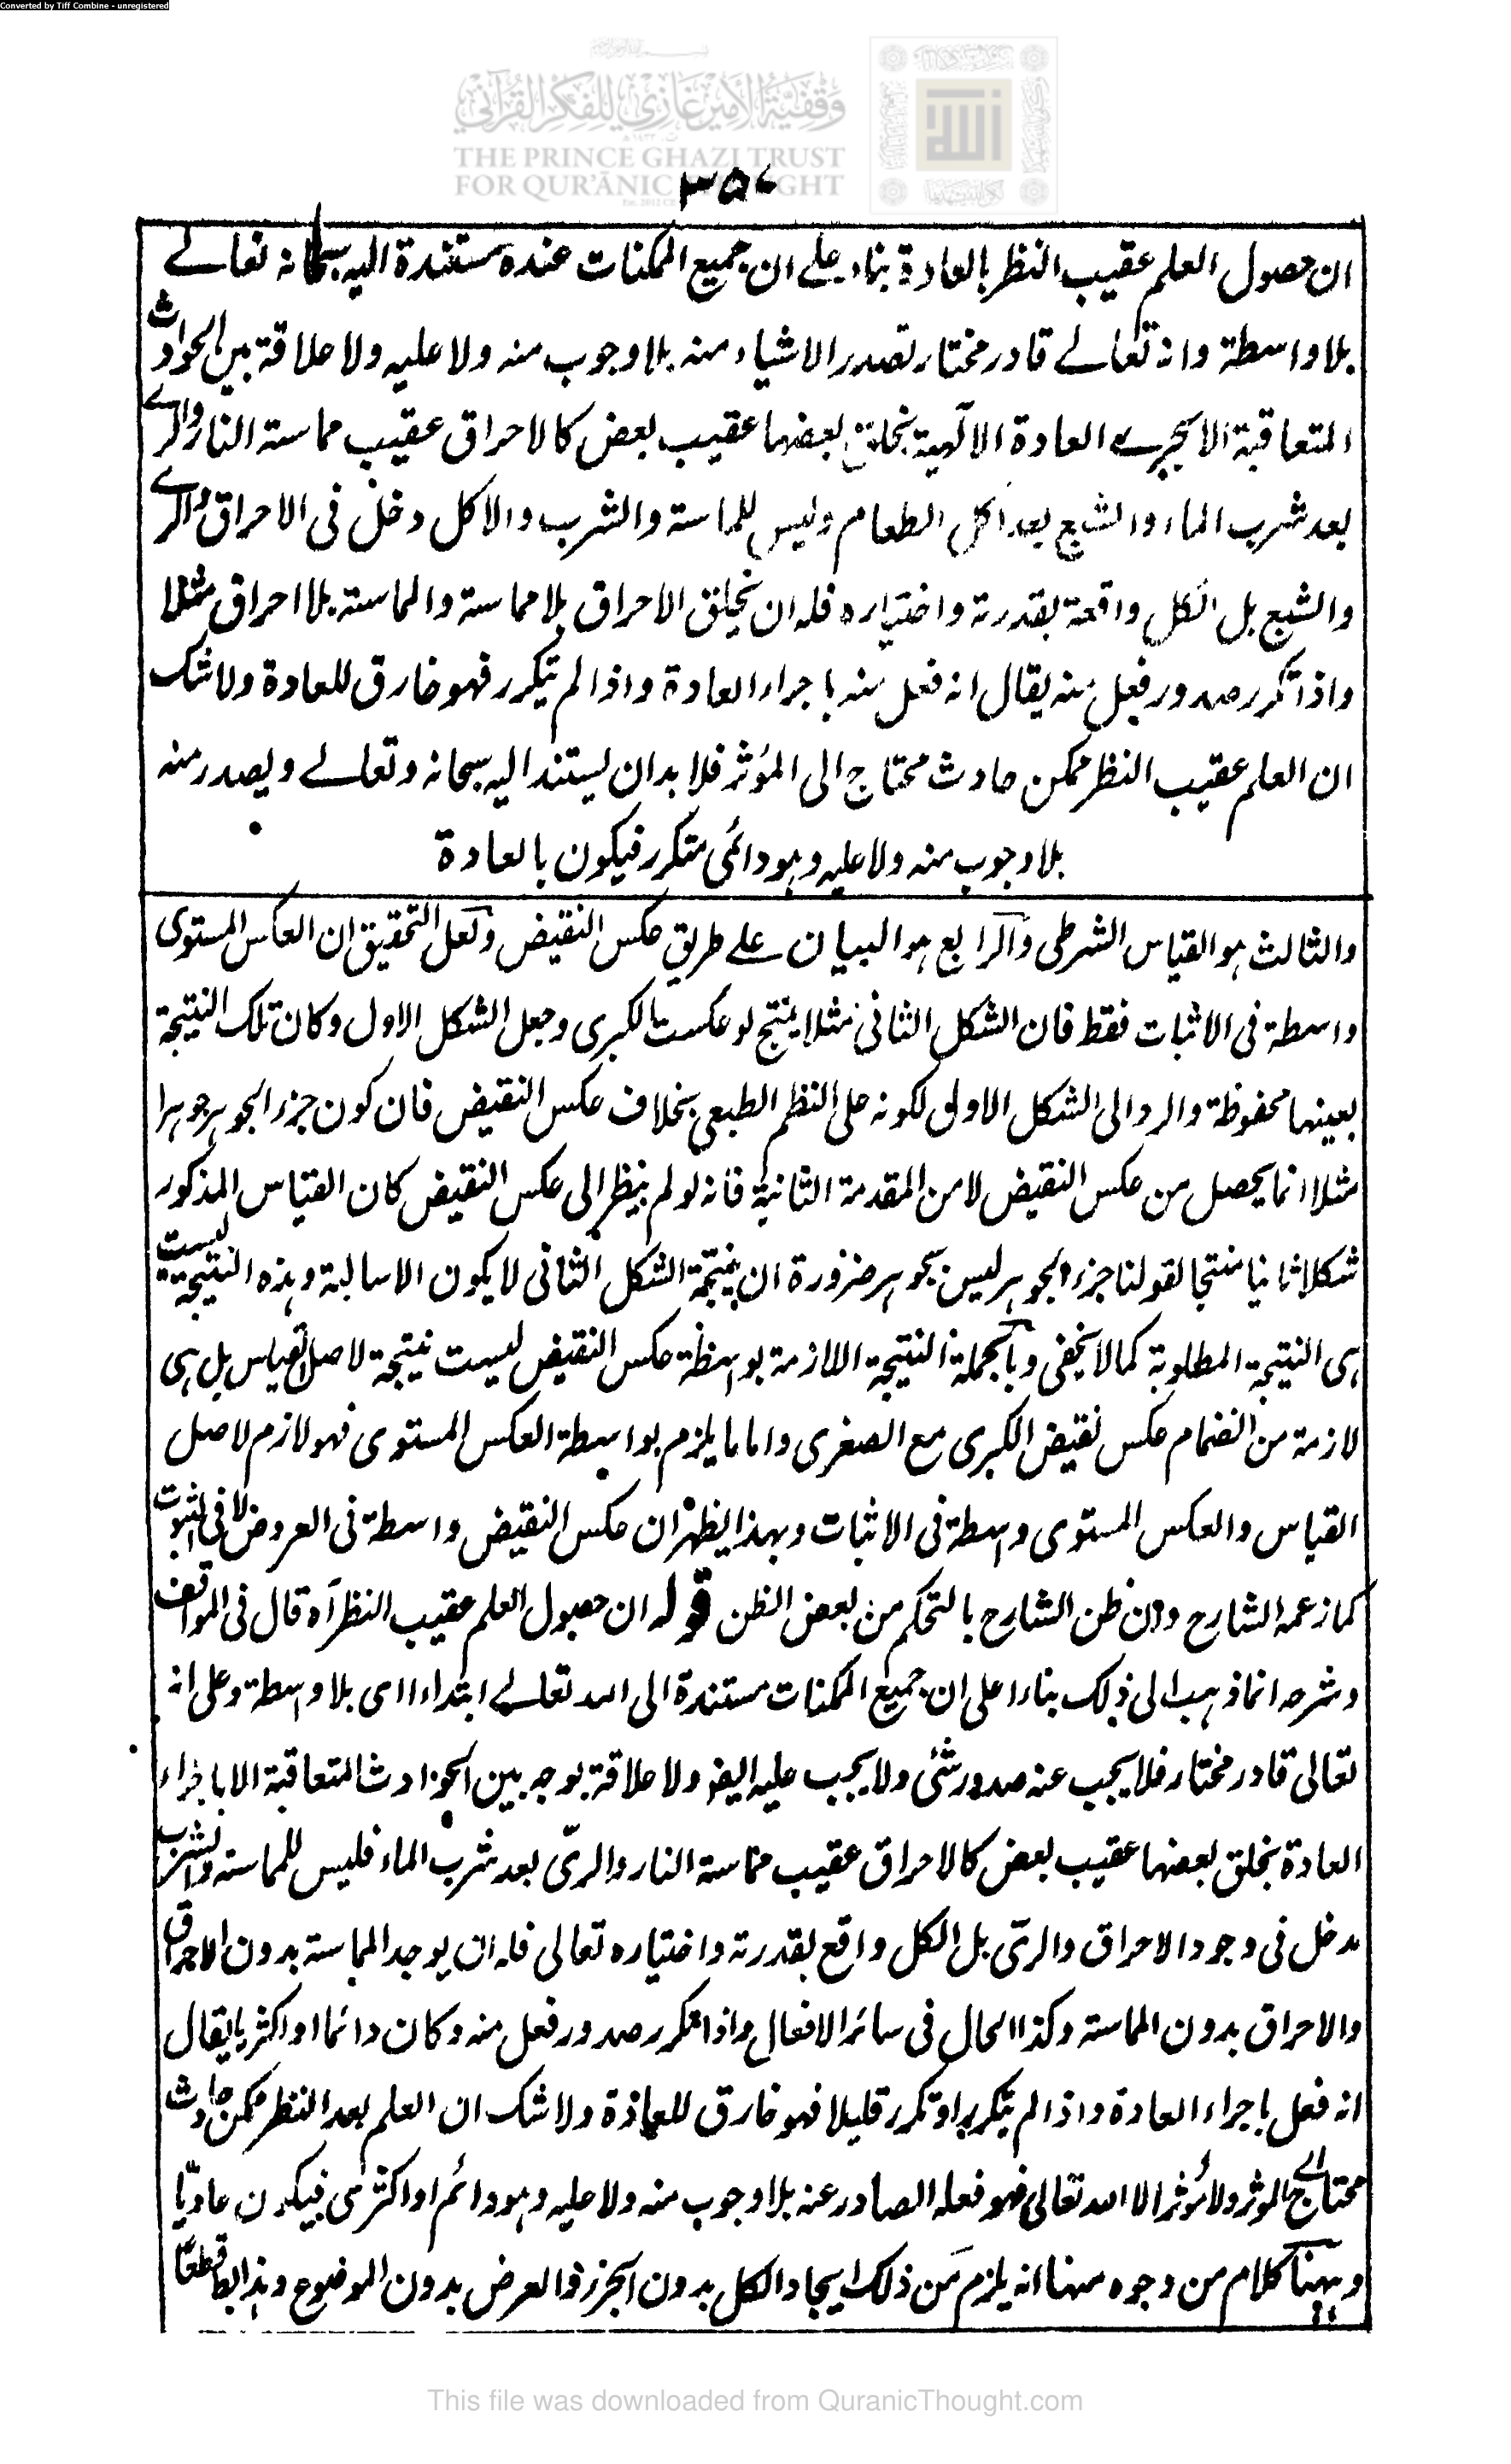 Converted by Tiff Combine - unregistered
وقفية الأمير غازي للفكر القرآني
THE PRINCE GHAZI TRUST
FOR QUR'ĀNIC THOUGHT
٣٥٧
ان حصول العلم عقيب النظر بالعادة بناء على ان جميع الممكنات عنده مستندة اليه سبحانه تعالے
بلا واسطة وانه تعالے قادر مختار تصدر الاشياء منه بلا وجوب منه ولا عليه ولا علاقة بين الحوادث
المتعاقبة الا بجرے العادة الالٓهية بخلق بعضها عقيب بعض كالاحراق عقيب مماسة النار والرے
بعد شرب الماء والشبع بعد اكل الطعام وليس للماسة والشرب والاكل دخل فى الاحراق والرے
والشبع بل الكل واقعة بقدرته واختياره فله ان يخلق الاحراق بلا مماسة والماسة بلا احراق مثلا
واذا تكرر صدور فعل منه يقال انه فعل منه باجراء العادة واذا لم يتكرر فهو خارق للعادة ولا شك
ان العلم عقيب النظر ممكن حادث محتاج الى المؤثر فلا بد ان يستند اليه سبحانه وتعالے ويصدر منه
بلا وجوب منه ولا عليه وهو دائمى متكرر فيكون بالعادة
والثالث هو القياس الشرطى والرابع هو البيان على طريق عكس النقيض ولعل التحقيق ان العكس المستوى
واسطة فى الاثبات فقط فان الشكل الثانى مثلا ينتج لو عكست الكبرى وجعل الشكل الاول وكان تلك النتيجة
بعينها محفوظة والرد الى الشكل الاول لكونه على النظم الطبعى بخلاف عكس النقيض فان كون جزء الجوهر جوهرا
مثلا انما يحصل من عكس النقيض لا من المقدمة الثانية فانه لو لم ينظر الى عكس النقيض كان القياس المذكور
شكلا ثانيا منتجا لقولنا جزء الجوهر ليس بجوهر ضرورة ان نتيجة الشكل الثانى لا يكون الا سالبة وهذه النتيجة ليست
هى النتيجة المطلوبة كما لا يخفى وبالجملة النتيجة اللازمة بواسطة عكس النقيض ليست نتيجة لاصل القياس بل هى
لازمة من انضمام عكس نقيض الكبرى مع الصغرى واما ما يلزم بواسطة العكس المستوى فهو لازم لاصل
القياس والعكس المستوى واسطة فى الاثبات وبهذا يظهر ان عكس النقيض واسطة فى العروض لا فى الثبوت
كما زعمه الشارح وان ظن الشارح بالتحكم من بعض الظن قوله ان حصول العلم عقيب النظر آه قال فى المواقف
وشرحه انما ذهب الى ذلك بناءا على ان جميع الممكنات مستندة الى الله تعالے ابتداءا اى بلا واسطة وعلى انه
تعالى قادر مختار فلا يجب عنه صدور شئ ولا يجب عليه ايضا ولا علاقة بوجه بين الحوادث المتعاقبة الا باجراء
العادة بخلق بعضها عقيب بعض كالاحراق عقيب مماسة النار والرىّ بعد شرب الماء فليس للماسة والشرب
مدخل فى وجود الاحراق والرىّ بل الكل واقع بقدرته واختياره تعالى فله ان يوجد المماسة بدون الاحراق
والاحراق بدون الماسة وكذا الحال فى سائر الافعال واذا تكرر صدور فعل منه وكان دائما او اكثريا يقال
انه فعل باجراء العادة واذا لم يتكرر او تكرر قليلا فهو خارق للعادة ولا شك ان العلم بعد النظر ممكن حادث
محتاج الے الموثر ولا مؤثر الا الله تعالى فهو فعله الصادر عنه بلا وجوب منه ولا عليه وهو دائم او اكثرى فيكون عاديّا
وههنا كلام من وجوه منها انه يلزم من ذلك ايجاد الكل بدون الجزء والعرض بدون الموضوع وهذا بط قطعًا
This file was downloaded from QuranicThought.com